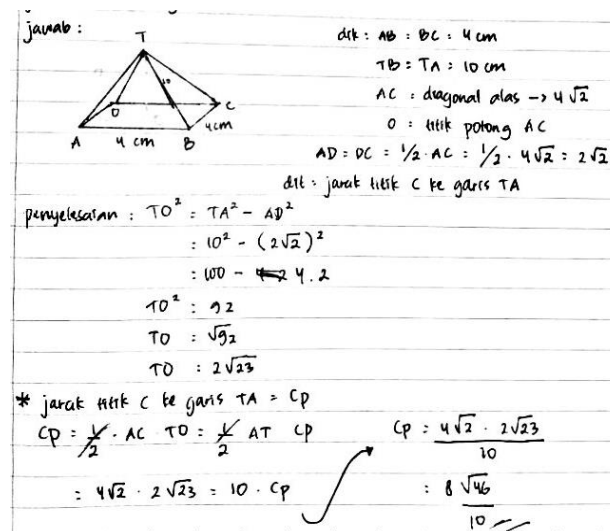 jawab :
T
10
D
C
A
B
4 cm
4cm
dik : AB : BC : 4 cm
TB : TA : 10 cm
AC : diagonal alas → 4√2
O : titik potong AC
AD : DC : 1/2 . AC : 1/2 . 4√2 : 2√2
dit : jarak titik C ke garis TA
penyelesaian : TO² : TA² - AD²
: 10² - (2√2)²
: 100 - 4.2
TO² : 92
TO : √92
TO : 2√23
* jarak titik C ke garis TA = Cp
Cp = 1/2 . AC TO = 1/2 AT Cp
: 4√2 . 2√23 = 10 . Cp
Cp : 4√2 . 2√23 / 10
: 8 √46 / 10